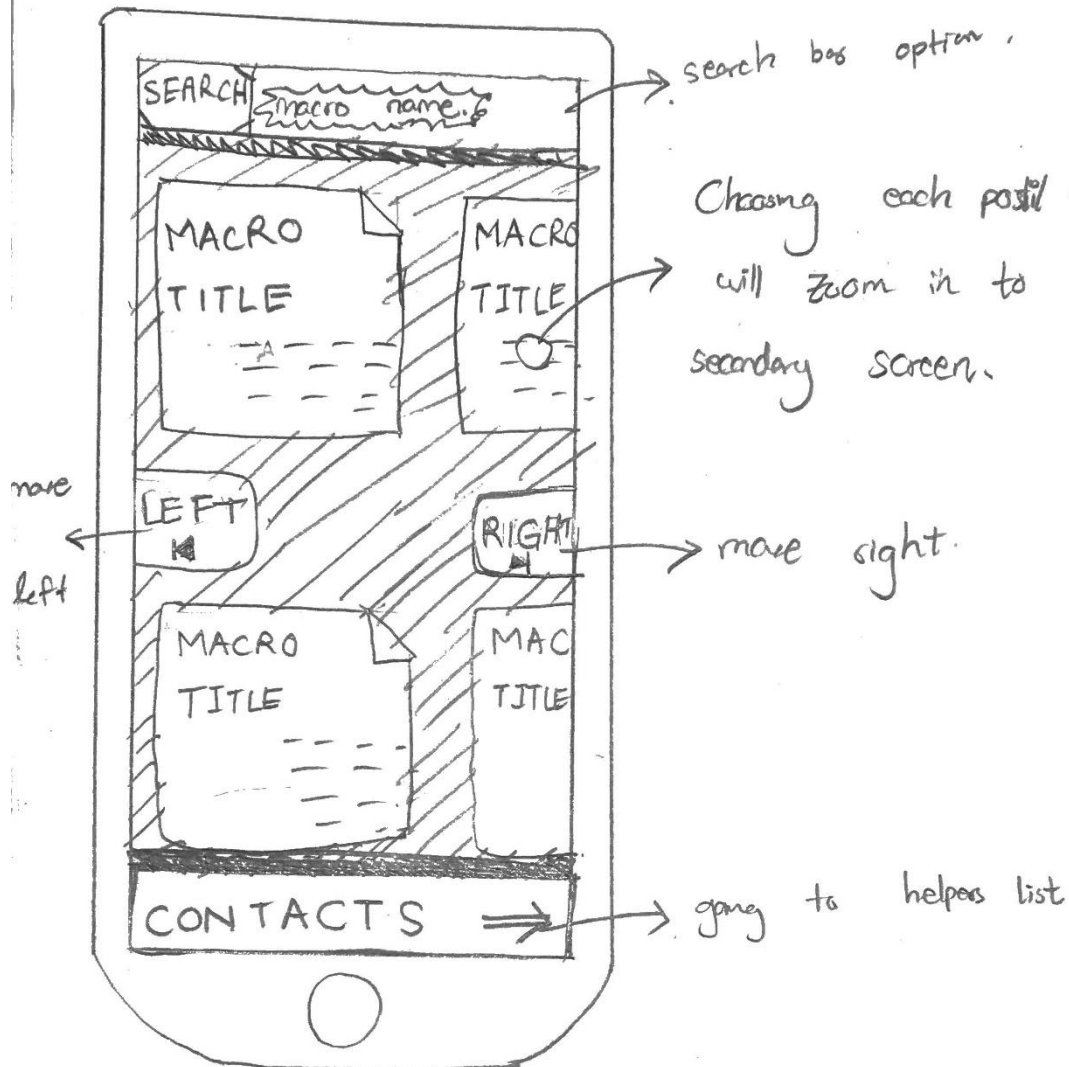 SEARCH macro name.
search bar option.
MACRO
TITLE
MACRO
TITLE
Choosing each postit
will zoom in to
secondary screen.
LEFT
move
left
RIGHT
move right.
MACRO
TITLE
MAC
TITLE
CONTACTS
going to helpers list